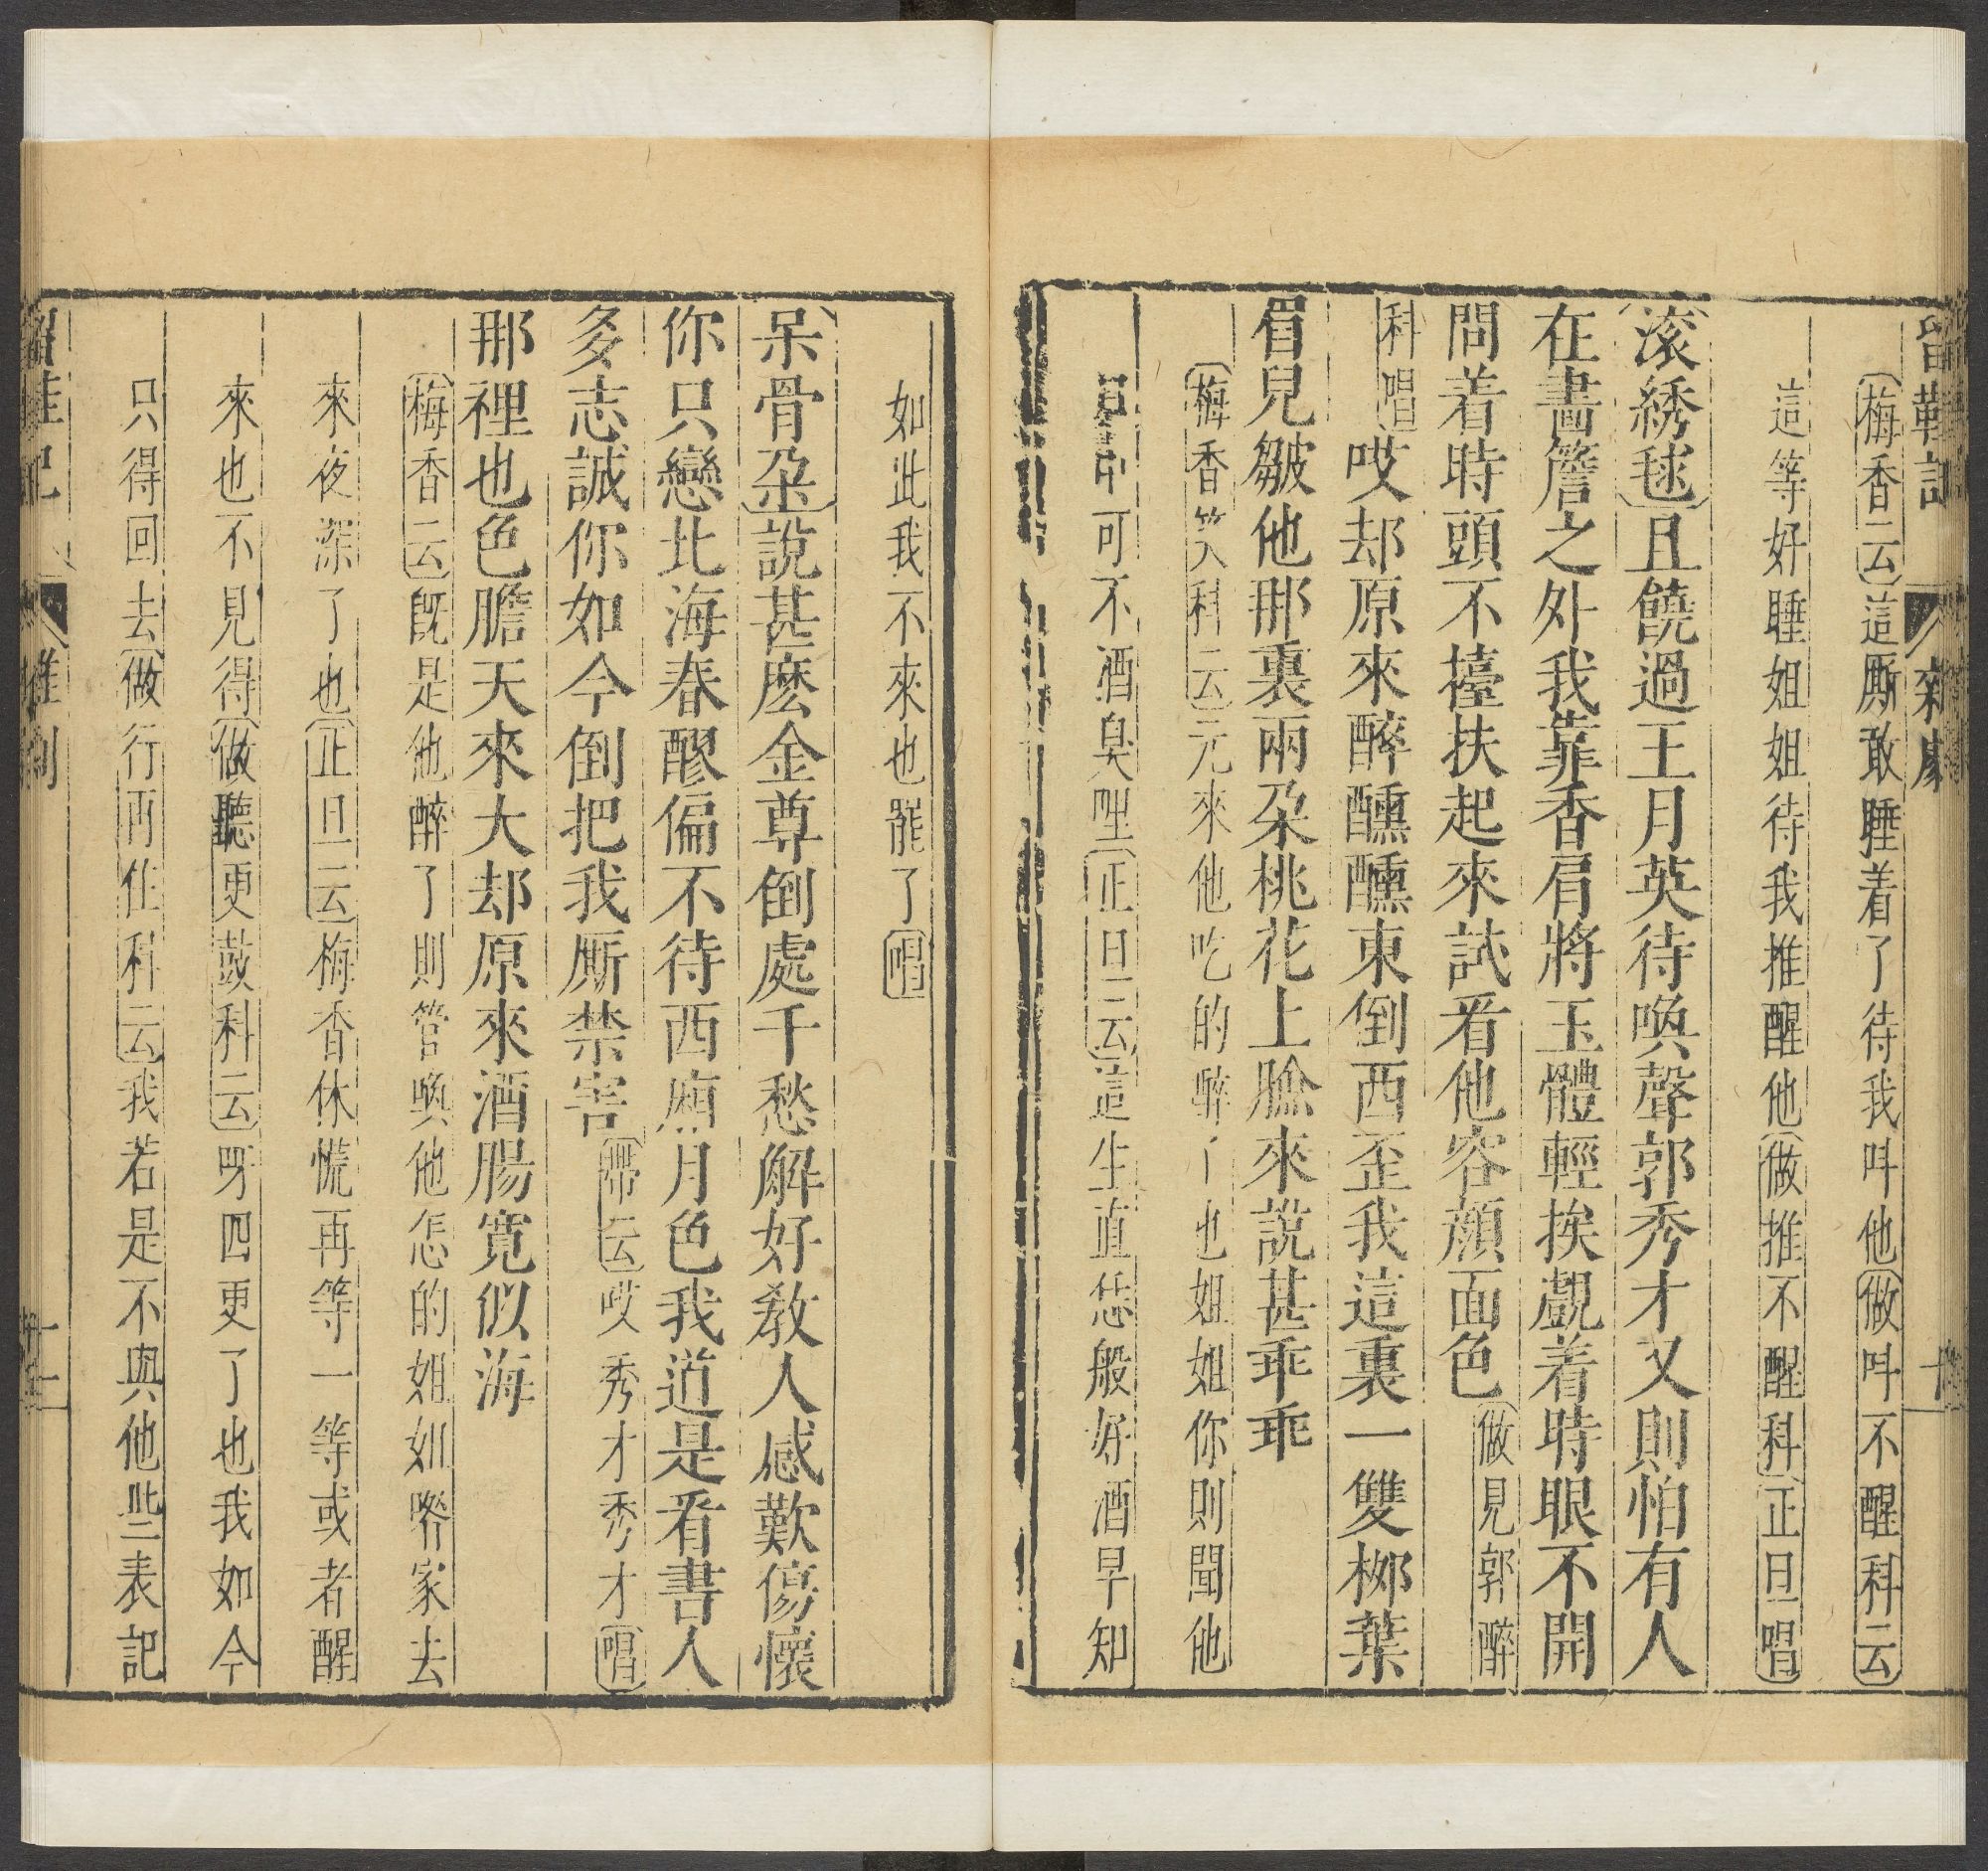 留鞋記 雜劇 十
〔梅香云〕這厮敢睡着了待我呌他〔做呌不醒科云〕
這等好睡姐姐待我推醒他〔做推不醒科〕〔正旦唱〕
〔滚綉毬〕且饒過王月英待喚聲郭秀才又則怕有人
在畫簷之外我靠香肩將玉體輕挨覷着時眼不開
問着時頭不擡扶起來試看他容顔面色〔做見郭醉
科唱〕哎却原來醉醺醺東倒西歪我這裏一雙栁葉
眉兒皺他那裏兩朶桃花上臉來說甚乖乖
〔梅香笑科云〕元來他吃的醉了也姐姐你則聞他
口中可不酒臭哩〔正旦云〕這生直恁般好酒早知
如此我不來也罷了〔唱〕
〔呆骨朶〕說甚麽金尊倒處千愁解好教人感歎傷懷
你只戀北海春醪偏不待西廂月色我道是看書人
多志誠你如今倒把我厮禁害〔帶云〕哎秀才秀才〔唱〕
那裡也色膽天來大却原來酒腸寛似海
〔梅香云〕旣是他醉了則管喚他怎的姐姐喒家去
來夜深了也〔正旦云〕梅香休慌再等一等或者醒
來也不見得〔做聽更鼓科云〕呀四更了也我如今
只得回去〔做行再住科云〕我若是不與他些表記
留鞋記 雜劇 十一